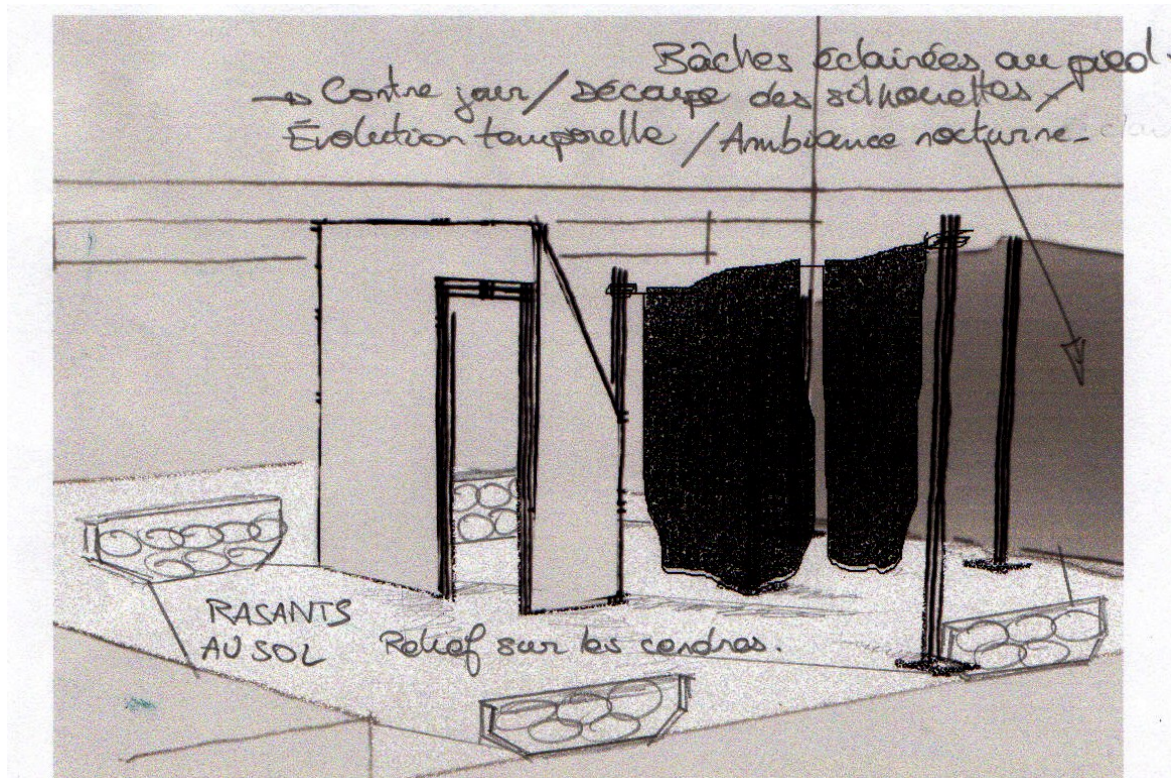 Bâches éclairées au pied.
→ Contre jour / Découpe des silhouettes /
Évolution temporelle / Ambiance nocturne -
RASANTS
AU SOL
Relief sur les cendres.